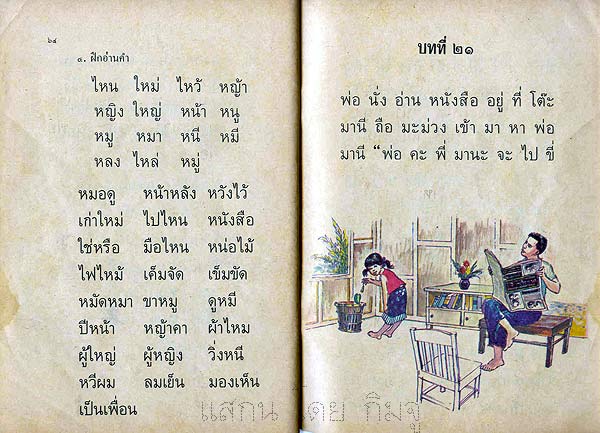 ๖๔
๔. ฝึกอ่านคำ
ไหน ใหม่ ไหว้ หญ้า
หญิง ใหญ่ หน้า หนู
หมู หมา หนี หมี
หลง ไหล่ หมู่
หมอดู หน้าหลัง หวังไว้
เก่าใหม่ ไปไหน หนังสือ
ใช่หรือ มือไหน หน่อไม้
ไฟไหม้ เค็มจัด เข็มขัด
หมัดหมา ขาหมู ดูหมี
ปีหน้า หญ้าคา ผ้าไหม
ผู้ใหญ่ ผู้หญิง วิ่งหนี
หวีผม ลมเย็น มองเห็น
เป็นเพื่อน
บทที่ ๒๑
พ่อ นั่ง อ่าน หนังสือ อยู่ ที่ โต๊ะ
มานี ถือ มะม่วง เข้า มา หา พ่อ
มานี “พ่อ คะ พี่ มานะ จะ ไป ขี่
แสกน โดย กิมจู